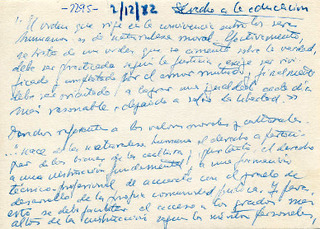 -7295- 2/12/82 Derecho a la educacion
"El orden que rige en la convivencia entre los seres
humanos es de naturaleza moral. Efectivamente,
se trata de un orden que se cimenta sobre la verdad,
debe ser practicado según la justicia, exige ser vivi
ficado y completado por el amor mutuo, y finalmente
debe ser orientado a lograr una igualdad cada día
más razonable, dejando a salvo la libertad.»
Derechos referente a los valores morales y culturales.
nace de la naturaleza humana el derecho a partici
par de los bienes de la cultura, por tanto, el derecho
a una instrucción fundamental y a una formación
técnico-profesional de acuerdo con el grado de
desarrollo de la propia comunidad política. Y para
esto se debe facilitar el acceso a los grados más
altos de la instrucción según los méritos personales,